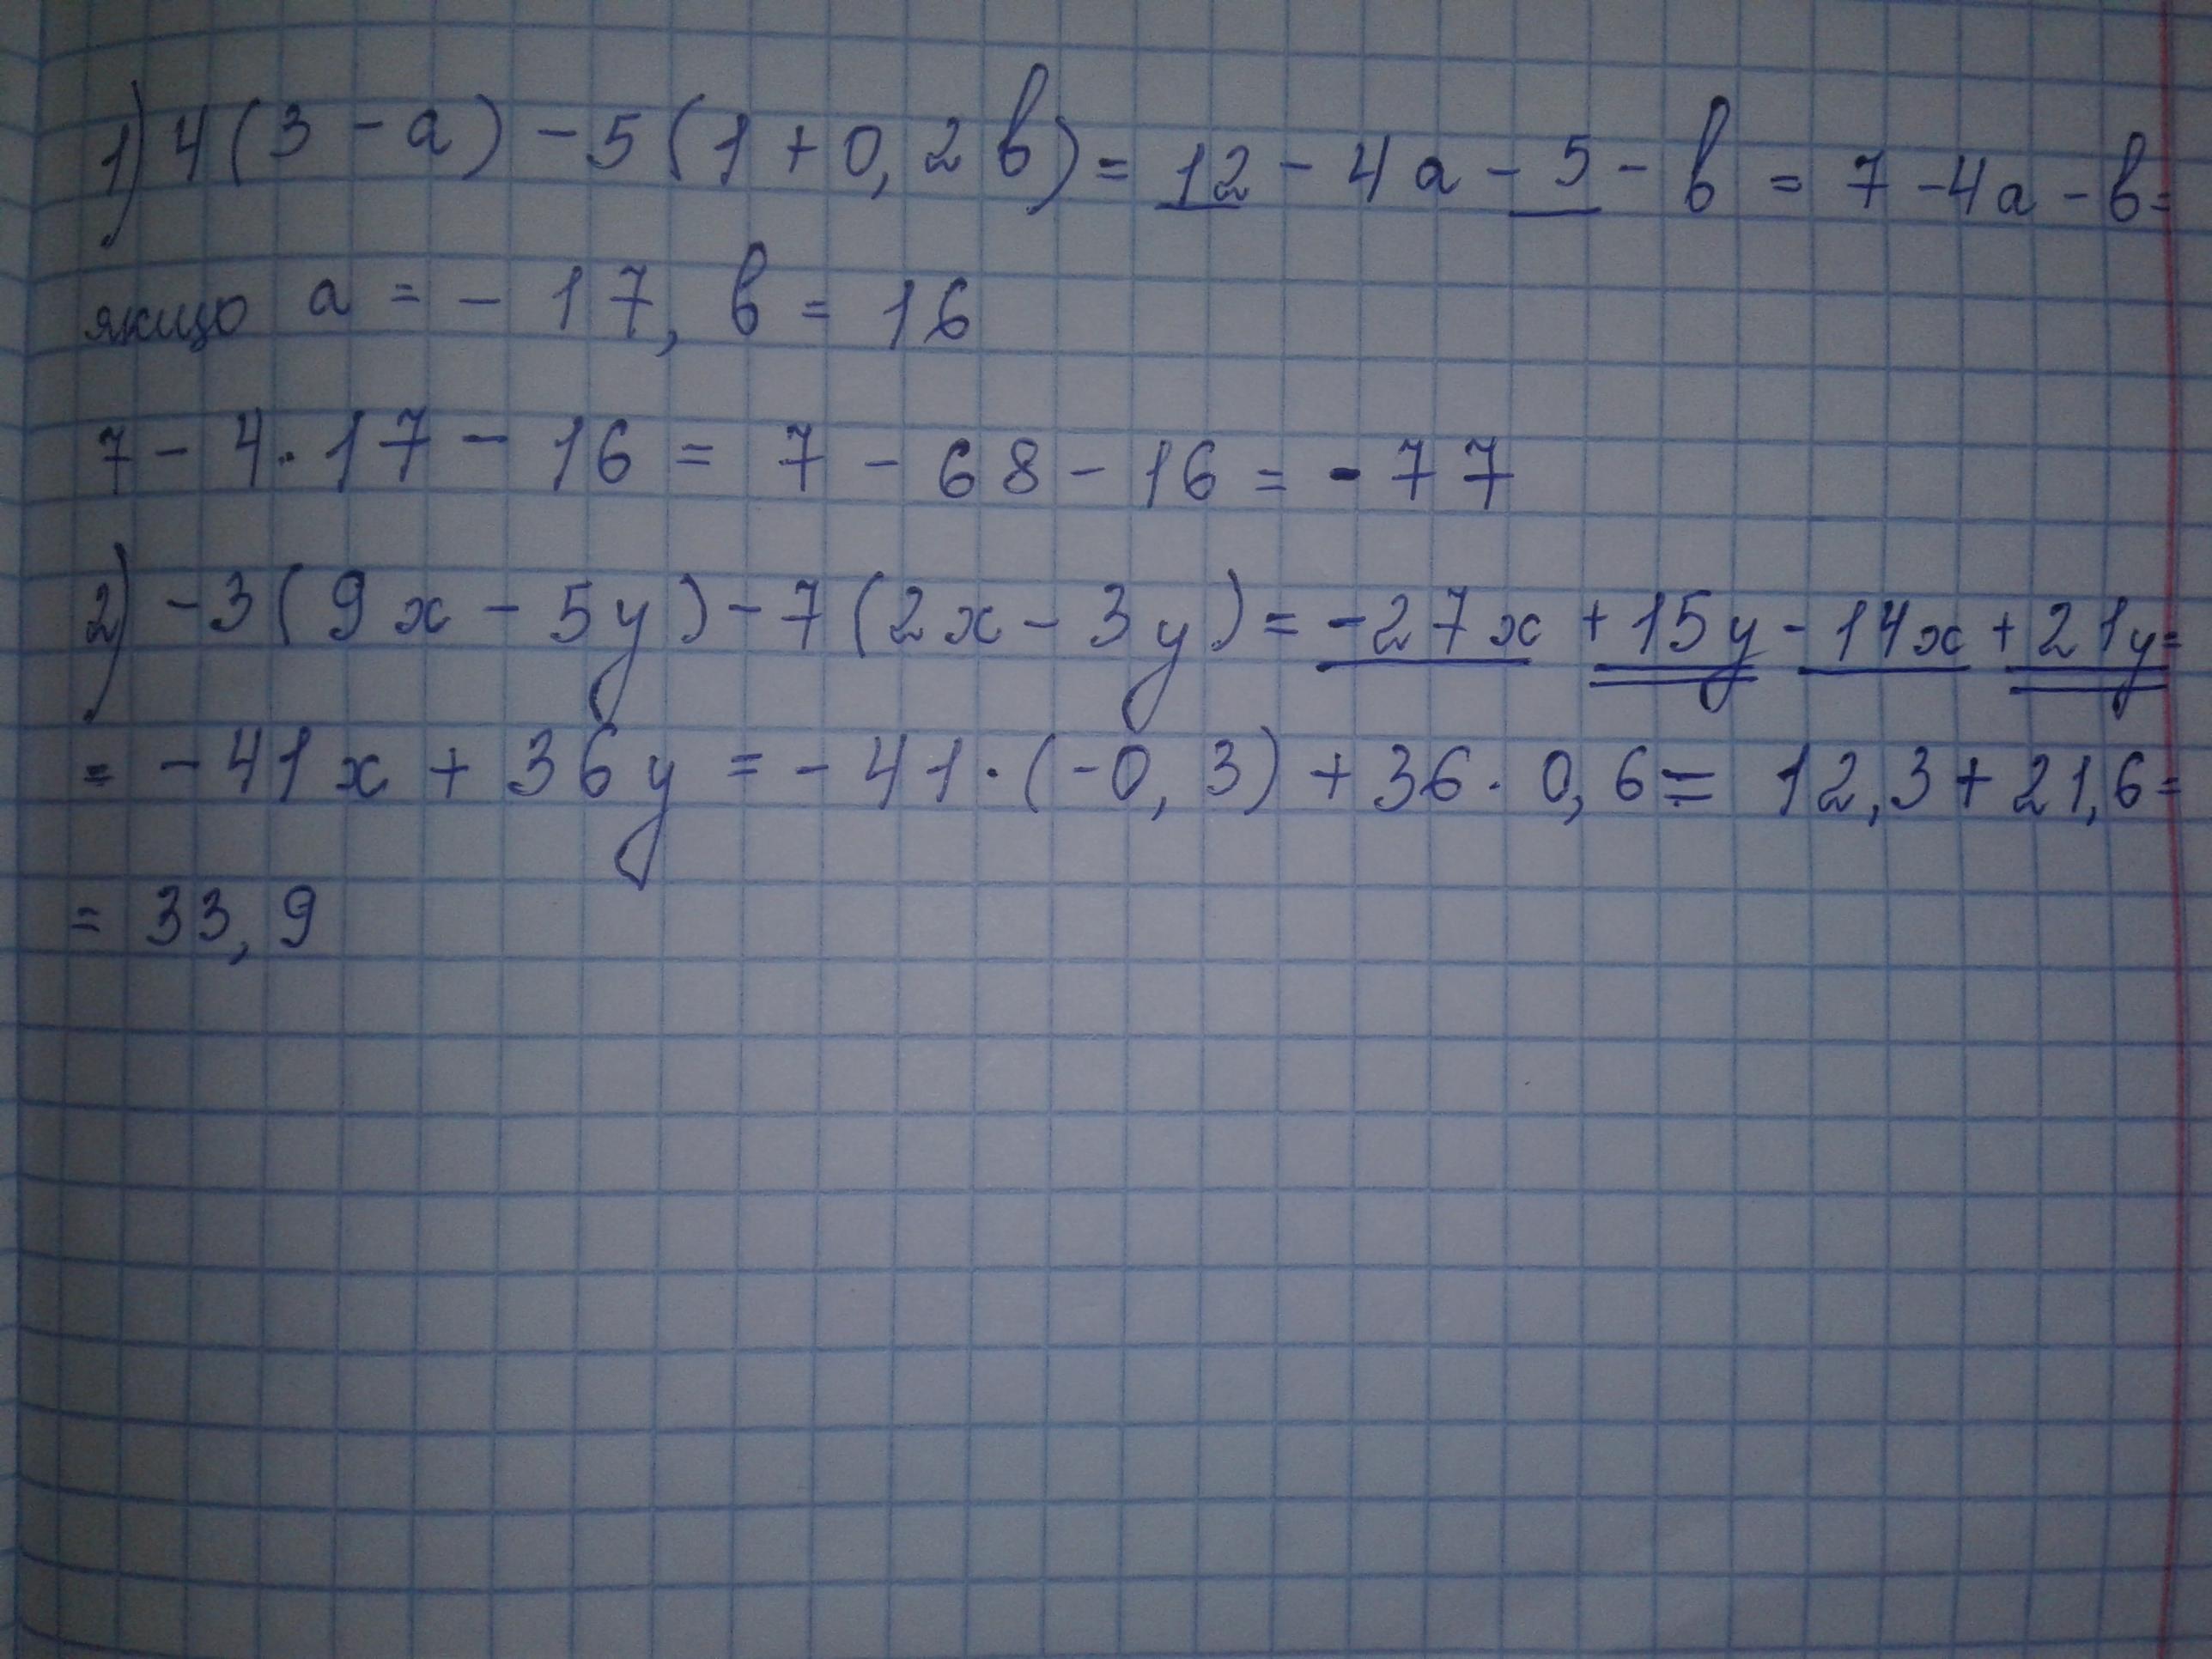 1) 4(3 - а) - 5(1 + 0,2в) = 12 - 4а - 5 - в = 7 - 4а - в =
якщо а = - 17, в = 16
7 - 4·17 - 16 = 7 - 68 - 16 = - 77
2) -3(9x - 5y) - 7(2x - 3y) = -27x + 15y - 14x + 21y =
= -41x + 36y = - 41·(-0,3) + 36·0,6 = 12,3 + 21,6 =
= 33,9